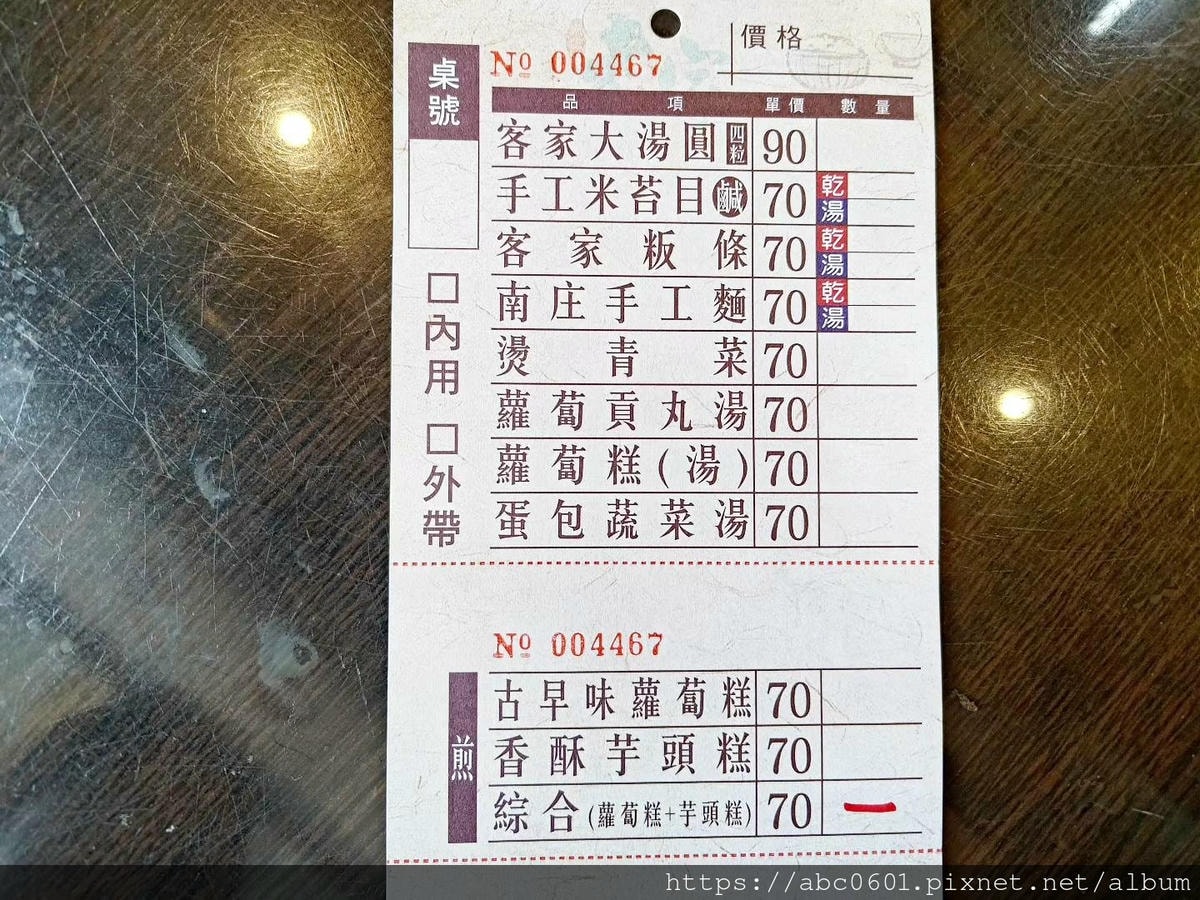 價格
桌號
№ 004467
品項 單價 數量
客家大湯圓 四粒 90
手工米苔目 鹹 70 乾 湯
客家粄條 70 乾 湯
南庄手工麵 70 乾 湯
燙青菜 70
蘿蔔貢丸湯 70
蘿蔔糕(湯) 70
蛋包蔬菜湯 70
□內用 □外帶
№ 004467
煎
古早味蘿蔔糕 70
香酥芋頭糕 70
綜合(蘿蔔糕+芋頭糕) 70 一
https://abc0601.pixnet.net/album